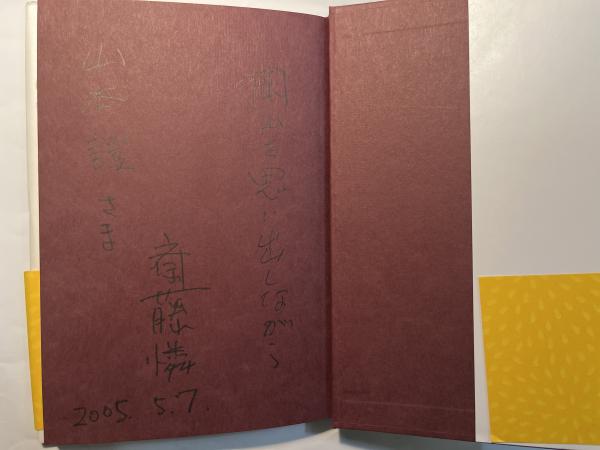 岡山を思い出しながら
齋藤憐
山谷 さま
2005. 5. 7.